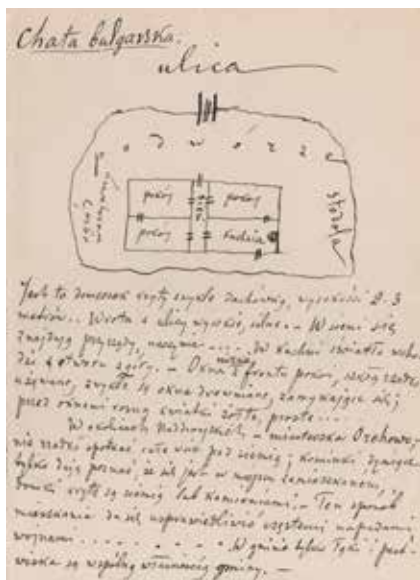 Chata bułgarska.
ulica
podwórze
ogród warzywny
stodoła
pokój
sień
pokój
pokój
kuchnia
Jest to domeczek kryty zwykle dachówką, wysokości 2-3
metrów.. Wrota z ulicy wysokie, silne. – W sieni się
znajdują przyrządy, naczynia .... Do kuchni światło wcho-
dzi z otworu z góry. – Okna z frontu pokoi, szkłem rzadko
zwykle są okna drewniane, zamykające się;
przed oknami rosną kwiatki żółte, proste...
W okolicach – miasteczka Orchowic,
nie rzadko spotkać całe wsie pod ziemią; kominki dymiące
tylko dają poznać, że się jest w miejscu zamieszkanem;
domki kryte są ziemią lub kamieniami. – Ten sposób
mieszkania da się usprawiedliwić częstemi napadami
wojnami . . . . . . . W gminie bywa łąki i past-
wiska są wspólną własnością gminy. –